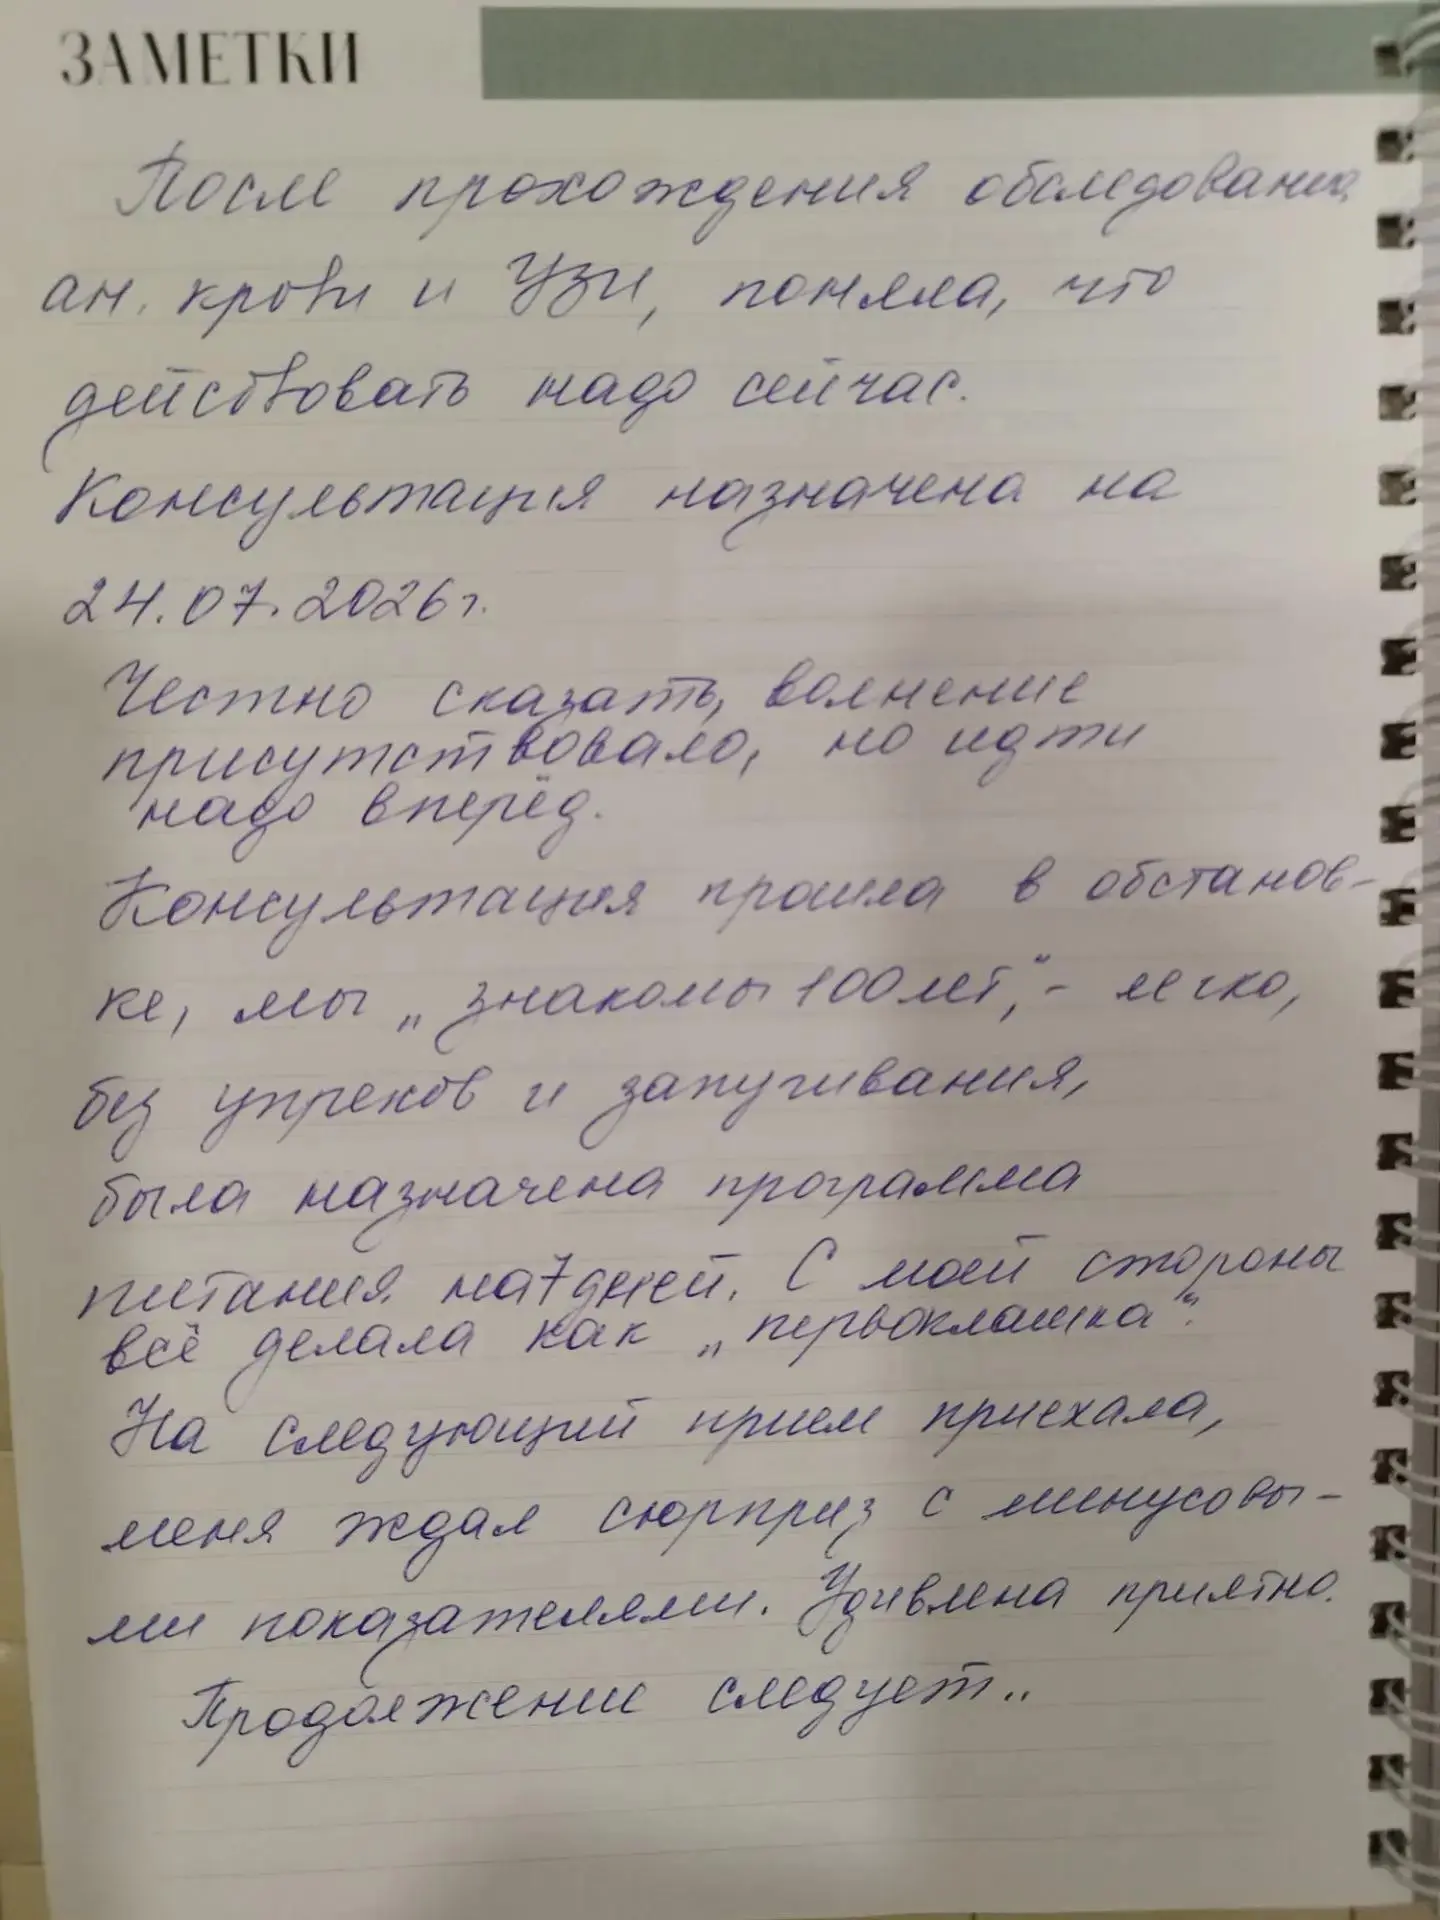 ЗАМЕТКИ
После прохождения обследования
ан. крови и УЗИ, поняла, что
действовать надо сейчас.
Консультация назначена на
24.07.2026г.
Честно сказать, волнение
присутствовало, но идти
надо вперёд.
Консультация прошла в обстанов-
ке, мы „знакомы 100 лет", - легко,
без упреков и запугивания,
была назначена программа
питания на 7 дней. С моей стороны
всё делала как „первоклашка".
На следующий прием приехала,
меня ждал сюрприз с минусовы-
ми показателями. Удивлена приятно.
Продолжение следует..